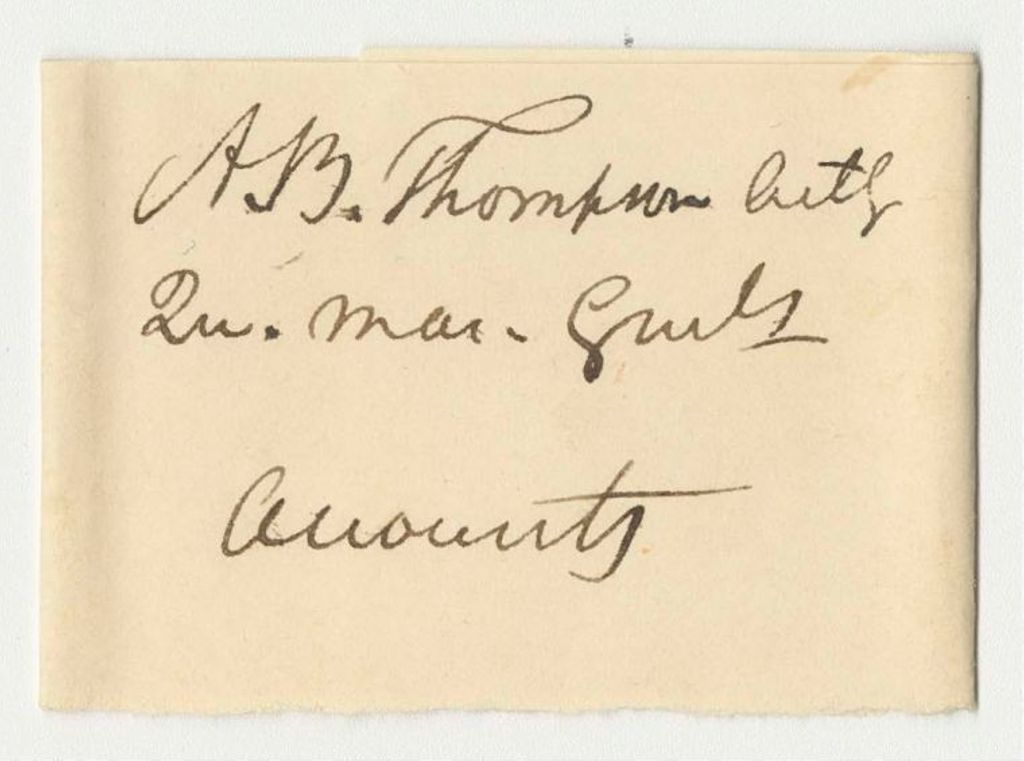 A.B. Thompson Actg
Qu. Mas. Genls
Accounts